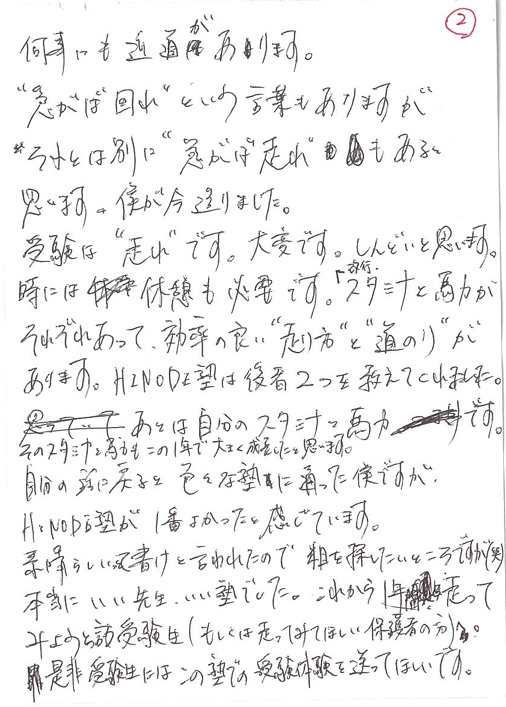 ②
何事にも近道があります。
"急がば回れ"という言葉もありますが
それとは別に"急がば走れ"もあると
思います。僕が今送りました。
受験は"走れ"です。大変です。しんどいと思います。
時には休憩も必要です。「スタミナと馬力が
それぞれあって、効率の良い"走り方"と"道のり"が
あります。HINODE塾は後者2つを教えてくれました。
あとは自分のスタミナと馬力です。
そのスタミナと馬力もこの1年で大きく成長したと思います。
自分の話に戻ると色々な塾に通った僕ですが、
HINODE塾が1番よかったと感じています。
素晴らしい 書けと言われたので粗を探したいところですが(笑)
本当にいい先生、いい塾でした。これから1年走って
みようと 受験生(もしくは走ってみてほしい保護者の方)
是非受験生にはこの塾での受験体験を送ってほしいです。